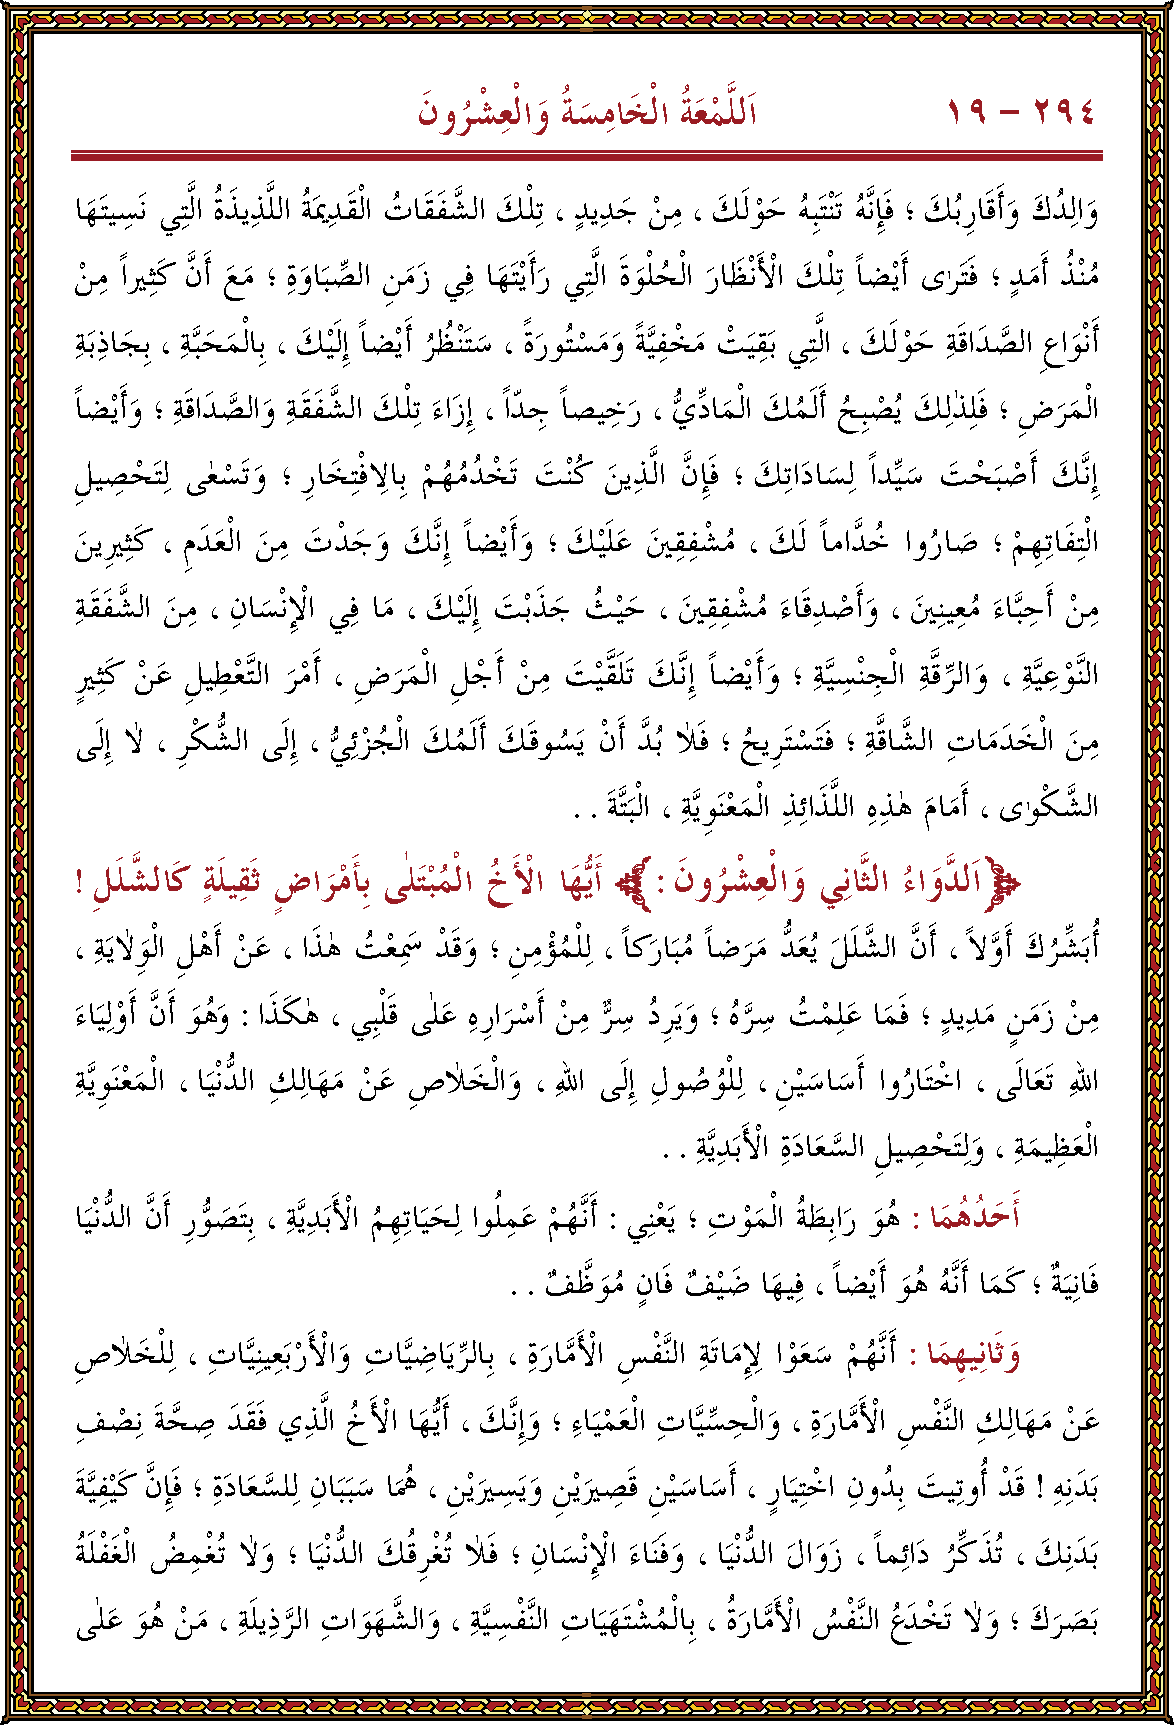 ٢٩٤ – ١٩
اَللَّمْعَةُ الْخَامِسَةُ وَالْعِشْرُونَ
وَالِدُكَ وَأَقَارِبُكَ ؛ فَإِنَّهُ تَنْتَبِهُ حَوْلَكَ ، مِنْ جَدِيدٍ ، تِلْكَ الشَّفَقَاتُ الْقَدِيمَةُ اللَّذِيذَةُ الَّتِي نَسِيتَهَا
مُنْذُ أَمَدٍ ؛ فَتَرٰى أَيْضاً تِلْكَ الْأَنْظَارَ الْحُلْوَةَ الَّتِي رَأَيْتَهَا فِي زَمَنِ الصِّبَاوَةِ ؛ مَعَ أَنَّ كَثِيراً مِنْ
أَنْوَاعِ الصَّدَاقَةِ حَوْلَكَ ، الَّتِي بَقِيَتْ مَخْفِيَّةً وَمَسْتُورَةً ، سَتَنْظُرُ أَيْضاً إِلَيْكَ ، بِالْمَحَبَّةِ ، بِجَاذِبَةِ
الْمَرَضِ ؛ فَلِذٰلِكَ يُصْبِحُ أَلَمُكَ الْمَادِّيُّ ، رَخِيصاً جِدّاً ، إِزَاءَ تِلْكَ الشَّفَقَةِ وَالصَّدَاقَةِ ؛ وَأَيْضاً
إِنَّكَ أَصْبَحْتَ سَيِّداً لِسَادَاتِكَ ؛ فَإِنَّ الَّذِينَ كُنْتَ تَخْدُمُهُمْ بِالِافْتِخَارِ ؛ وَتَسْعٰى لِتَحْصِيلِ
الْتِفَاتِهِمْ ؛ صَارُوا خُدَّاماً لَكَ ، مُشْفِقِينَ عَلَيْكَ ؛ وَأَيْضاً إِنَّكَ وَجَدْتَ مِنَ الْعَدَمِ ، كَثِيرِينَ
مِنْ أَحِبَّاءَ مُعِينِينَ ، وَأَصْدِقَاءَ مُشْفِقِينَ ، حَيْثُ جَذَبْتَ إِلَيْكَ ، مَا فِي الْإِنْسَانِ ، مِنَ الشَّفَقَةِ
النَّوْعِيَّةِ ، وَالرِّقَّةِ الْجِنْسِيَّةِ ؛ وَأَيْضاً إِنَّكَ تَلَقَّيْتَ مِنْ أَجْلِ الْمَرَضِ ، أَمْرَ التَّعْطِيلِ عَنْ كَثِيرٍ
مِنَ الْخَدَمَاتِ الشَّاقَّةِ ؛ فَتَسْتَرِيحُ ؛ فَلَا بُدَّ أَنْ يَسُوقَكَ أَلَمُكَ الْجُزْئِيُّ ، إِلَى الشُّكْرِ ، لَا إِلَى
الشَّكْوٰى ، أَمَامَ هٰذِهِ اللَّذَائِذِ الْمَعْنَوِيَّةِ ، الْبَتَّةَ . .
﴿اَلدَّوَاءُ الثَّانِي وَالْعِشْرُونَ : ﴾ أَيُّهَا الْأَخُ الْمُبْتَلٰى بِأَمْرَاضٍ ثَقِيلَةٍ كَالشَّلَلِ !
أُبَشِّرُكَ أَوَّلاً ، أَنَّ الشَّلَلَ يُعَدُّ مَرَضاً مُبَارَكاً ، لِلْمُؤْمِنِ ؛ وَقَدْ سَمِعْتُ هٰذَا ، عَنْ أَهْلِ الْوَلَايَةِ ،
مِنْ زَمَنٍ مَدِيدٍ ؛ فَمَا عَلِمْتُ سِرَّهُ ؛ وَيَرِدُ سِرٌّ مِنْ أَسْرَارِهِ عَلٰى قَلْبِي ، هٰكَذَا : وَهُوَ أَنَّ أَوْلِيَاءَ
اللهِ تَعَالَى ، اخْتَارُوا أَسَاسَيْنِ ، لِلْوُصُولِ إِلَى اللهِ ، وَالْخَلَاصِ عَنْ مَهَالِكِ الدُّنْيَا ، الْمَعْنَوِيَّةِ
الْعَظِيمَةِ ، وَلِتَحْصِيلِ السَّعَادَةِ الْأَبَدِيَّةِ . .
أَحَدُهُمَا : هُوَ رَابِطَةُ الْمَوْتِ ؛ يَعْنِي : أَنَّهُمْ عَمِلُوا لِحَيَاتِهِمُ الْأَبَدِيَّةِ ، بِتَصَوُّرِ أَنَّ الدُّنْيَا
فَانِيَةٌ ؛ كَمَا أَنَّهُ هُوَ أَيْضاً ، فِيهَا ضَيْفٌ فَانٍ مُوَظَّفٌ . .
وَثَانِيهِمَا : أَنَّهُمْ سَعَوْا لِإِمَاتَةِ النَّفْسِ الْأَمَّارَةِ ، بِالرِّيَاضِيَّاتِ وَالْأَرْبَعِينِيَّاتِ ، لِلْخَلَاصِ
عَنْ مَهَالِكِ النَّفْسِ الْأَمَّارَةِ ، وَالْحِسِّيَّاتِ الْعَمْيَاءِ ؛ وَإِنَّكَ ، أَيُّهَا الْأَخُ الَّذِي فَقَدَ صِحَّةَ نِصْفِ
بَدَنِهِ ! قَدْ أُوتِيتَ بِدُونِ اخْتِيَارٍ ، أَسَاسَيْنِ قَصِيرَيْنِ وَيَسِيرَيْنِ ، هُمَا سَبَبَانِ لِلسَّعَادَةِ ؛ فَإِنَّ كَيْفِيَّةَ
بَدَنِكَ ، تُذَكِّرُ دَائِماً ، زَوَالَ الدُّنْيَا ، وَفَنَاءَ الْإِنْسَانِ ؛ فَلَا تُغْرِقُكَ الدُّنْيَا ؛ وَلَا تُغْمِضُ الْغَفْلَةُ
بَصَرَكَ ؛ وَلَا تَخْدَعُ النَّفْسُ الْأَمَّارَةُ ، بِالْمُشْتَهَيَاتِ النَّفْسِيَّةِ ، وَالشَّهَوَاتِ الرَّذِيلَةِ ، مَنْ هُوَ عَلٰى